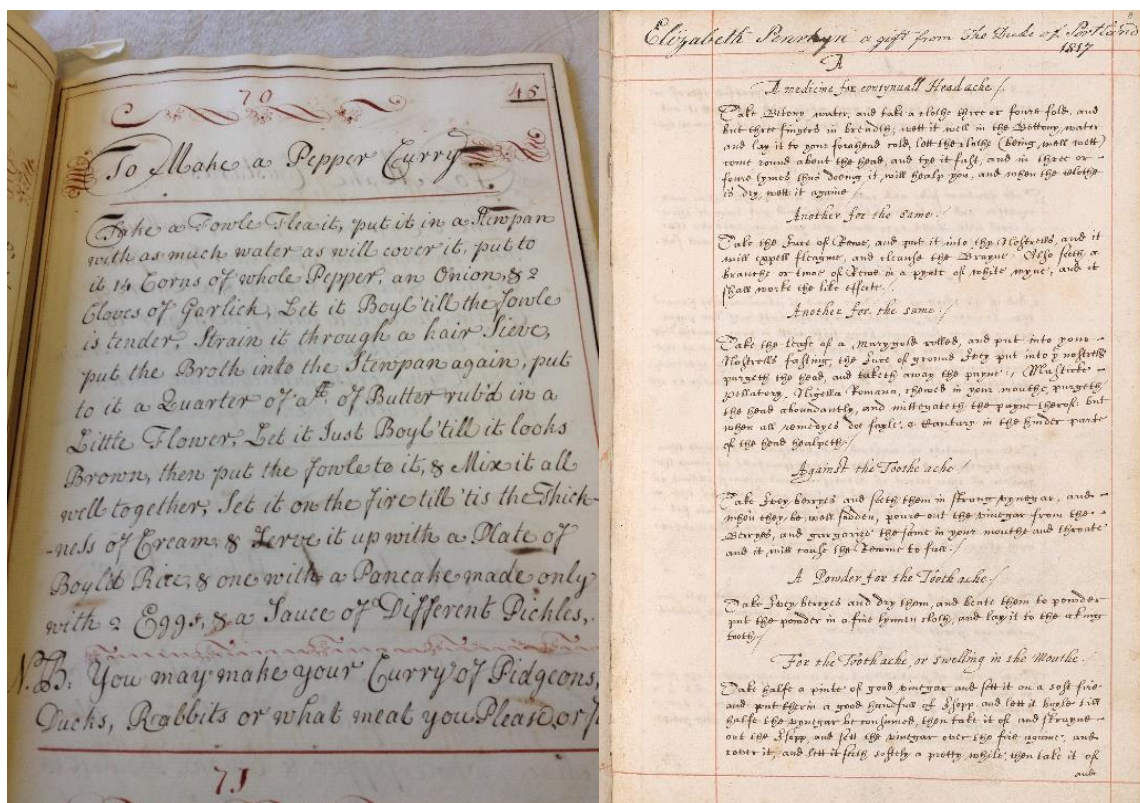 70
45
To Make a Pepper Curry
Take a Fowle Flea it, put it in a Stewpan
with as much water as will cover it, put to
it 14 Corns of whole Pepper, an Onion, & 2
Cloves of Garlick, Let it Boyl 'till the Fowle
is tender, Strain it through a hair Sieve,
put the Broth into the Stewpan again, put
to it a Quarter of a lb of Butter rub'd in a
Little Flower, Let it Just Boyl 'till it looks
Brown, then put the Fowle to it, & Mix it all
well together, Set it on the Fire till 'tis the Thick-
-ness of Cream, & Serve it up with a Plate of
Boyl'd Rice, & one with a Pancake made only
with 2 Eggs, & a Sauce of Different Pickles,
N.B. You may make your Curry of Pidgeons,
Ducks, Rabbits or what meat you Please, or
71
Elizabeth Penrhyn a gift from The Duke of Portland
1817
A
A medicine for contynuall Headache /.
Take Betony water, and take a clothe three or foure fold, and
but three fingers in breadth, wett it well in the Bettony water
and lay it to your forehead cold, lett the clothe (being well wett)
come round about the head, and tye it fast, and in three or
foure tymes thus doeing it, will healp you, and when the clothe
is dry, wett it againe
Another for the same.
Take the Juce of Rewe, and put it into thy Nostrells, and it
will expell fleagme, and cleanse the Brayne. Also seeth a
braunche or twoe of Rewe in a pynte of white wyne, and it
shall worke the like effecte.
Another for the same.
Take the leafe of a marygold rolled, and put into your
Nostrells fasting, the Juce of ground Ivey put into yͤ nostrells
purgeth the head, and taketh away the payne, Masticke
Pellatory, Nigella Romana, chewed in your mouthe, purgeth
the head aboundantly, and mittegateth the payne therof: but
when all remedyes doe fayle, a in the hinder parte
of the head healpeth
Against the Tootheache /
Take Ivey berryes and seeth them in strong vyneger, and
when they be well sodden, poure out the vinegar from the
Berryes, and gargarize the same in your mouthe and throate
and it will cause the Rewme to fall.
A Powder for the Toothache /
Take Ivey berryes and dry them, and beate them to powder
put the powder in a fine lynnen cloth, and lay it to the aking
tooth
For the Toothache, or swelling in the Mouthe.
Take halfe a pinte of good vinegar and sett it on a soft fire
and put therin a good handfull of Isopp, and lett it boyle till
halfe the vynegar be consumed, then take it of and strayne
out the Isopp, and sett the vinegar over the fire againe, and
cover it, and lett it seeth softely a pretty while, then take it of
and